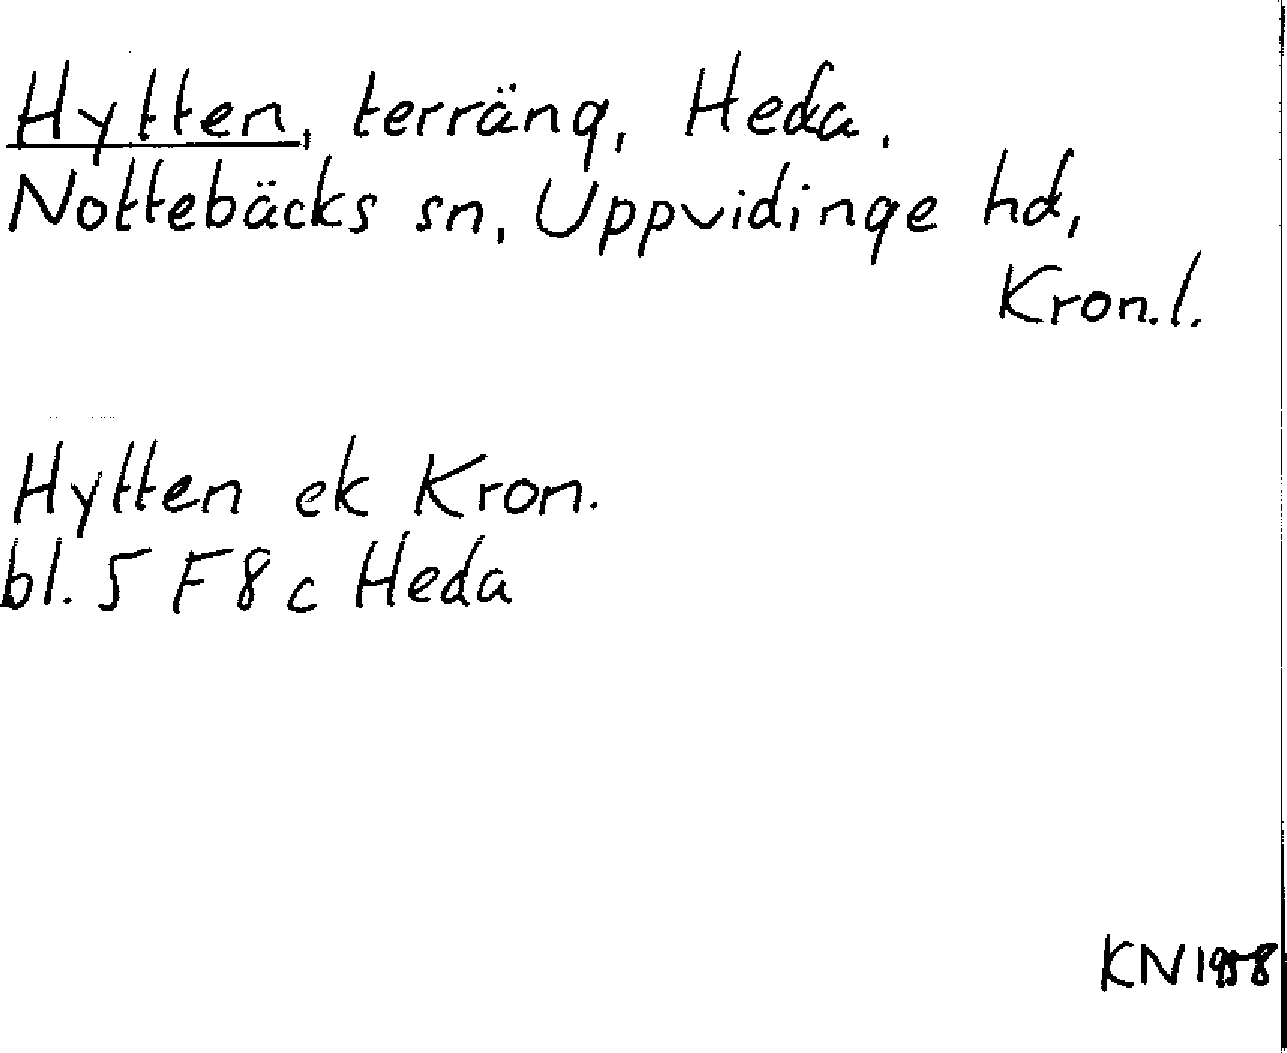 Hytten, terräng, Heda.
Nottebäcks sn, Uppvidinge hd,
Kron.l.
Hytten ek Kron.
bl. 5 F 8 c Heda
KN 1958